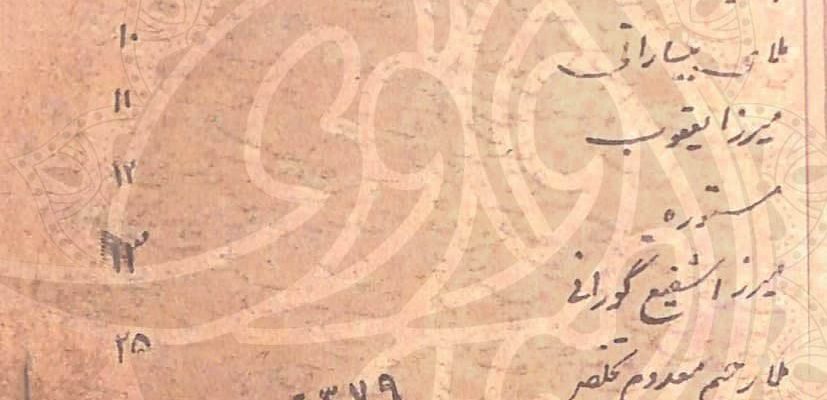 ملای بیسارانی ۱۰
میرزا یعقوب ۱۱
مستوره ۱۲
میرزا شفیع گورانی ۱۳
ملا رحیم معدوم تخلص ۲۵